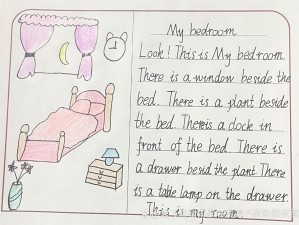 My bedroom
Look! This is My bedroom.
There is a window beside the
bed. There is a plant beside
the bed. There is a clock in
front of the bed. There is
a drawer besid the plant There
is a table lamp on the drawer.
This is my room